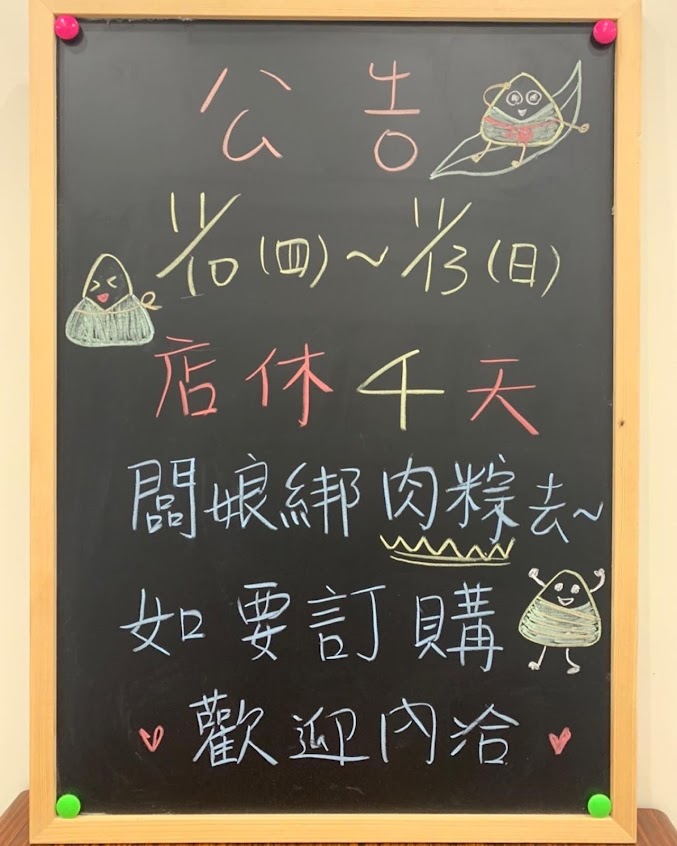 公告
11/10(四)~11/13(日)
店休4天
闆娘綁肉粽去~
如要訂購
歡迎內洽